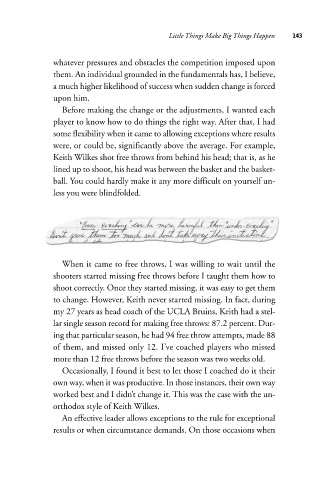 Little Things Make Big Things Happen 143
whatever pressures and obstacles the competition imposed upon
them. An individual grounded in the fundamentals has, I believe,
a much higher likelihood of success when sudden change is forced
upon him.
Before making the change or the adjustments, I wanted each
player to know how to do things the right way. After that, I had
some flexibility when it came to allowing exceptions where results
were, or could be, significantly above the average. For example,
Keith Wilkes shot free throws from behind his head; that is, as he
lined up to shoot, his head was between the basket and the basket-
ball. You could hardly make it any more difficult on yourself un-
less you were blindfolded.
"Over-coaching" can be more harmful than "under-coaching."
Don't give them too much and don't take away their
When it came to free throws, I was willing to wait until the
shooters started missing free throws before I taught them how to
shoot correctly. Once they started missing, it was easy to get them
to change. However, Keith never started missing. In fact, during
my 27 years as head coach of the UCLA Bruins, Keith had a stel-
lar single season record for making free throws: 87.2 percent. Dur-
ing that particular season, he had 94 free throw attempts, made 88
of them, and missed only 12. I've coached players who missed
more than 12 free throws before the season was two weeks old.
Occasionally, I found it best to let those I coached do it their
own way, when it was productive. In those instances, their own way
worked best and I didn't change it. This was the case with the un-
orthodox style of Keith Wilkes.
An effective leader allows exceptions to the rule for exceptional
results or when circumstance demands. On those occasions when